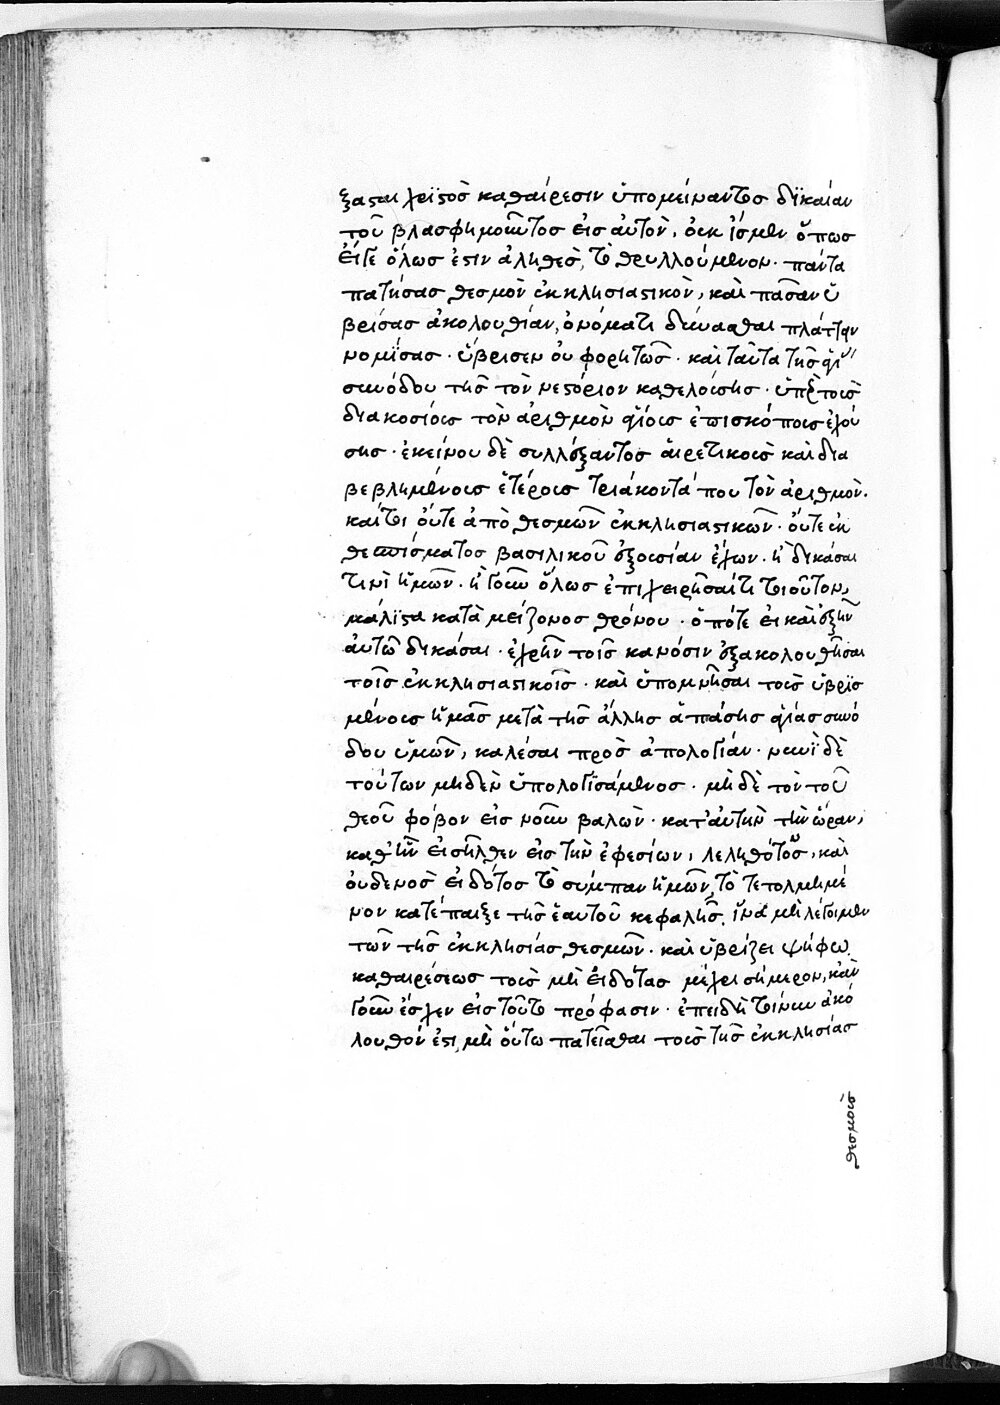 ξασαι χριστὸς καθαίρεσιν ὑπομείναντος δικαίαν
τοῦ βλασφημοῦντος εἰς αὐτὸν, οὐκ ἴσμεν ὅπως
εἴγε ὅλως ἐστὶν ἀληθὲς, τὸ θρυλλούμενον· πάντα
πατήσας θεσμὸν ἐκκλησιαστικὸν, καὶ πᾶσαν ὑ
βρίσας ἀκολουθίαν, ὀνόματι δύνασθαι πλάττειν
νομίσας· ὕβρισεν οὐ φορητῶς· καὶ ταῦτα τῆς ἁγί
συνόδου τῆς τὸν νεστόριον καθελούσης· ὑπὲρ τοὺς
διακοσίους τὸν ἀριθμὸν ἁγίους ἐπισκόπους ἐχού
σης· ἐκείνου δὲ συλλέξαντος αἱρετικοὺς καὶ δια
βεβλημένους ἑτέρους τριάκοντά που τὸν ἀριθμὸν.
καίτοι οὔτε ἀπὸ θεσμῶν ἐκκλησιαστικῶν· οὔτε ἐκ
θεσπίσματος βασιλικοῦ ἐξουσίαν ἔχων· ἢ δικάσαι
τινὶ ἡμῶν· ἢ γοῦν ὅλως ἐπιχειρῆσαί τι τοιοῦτον,
μάλιστα κατὰ μείζονος θρόνου· ὁπότε εἰ καὶ ἐξῆν
αὐτῶ δικάσαι· ἐχρῆν τοῖς κανόσιν ἐξακολουθῆσαι
τοῖς ἐκκλησιαστικοῖς· καὶ ὑπομνῆσαι τοὺς ὑβρισ
μένους ἡμᾶς μετὰ τῆς ἄλλης ἁπάσης ἁγίας συνό
δου ὑμῶν, καλέσαι πρὸς ἀπολογίαν· νυνὶ δὲ
τούτων μηδὲν ὑπολογισάμενος· μὴ δὲ τὸν τοῦ
θεοῦ φόβον εἰς νοῦν βαλὼν· κατ' αὐτὴν τὴν ὥραν,
καθ' ἣν εἰσῆλθεν εἰς τὴν ἐφεσίων, λεληθότως, καὶ
οὐδενὸς εἰδότος τὸ σύμπαν ἡμῶν, τὸ τετολμημέ
νον κατέπαιξε τῆς ἑαυτοῦ κεφαλῆς, ἵνα μὴ λέγοιμεν
τῶν τῆς ἐκκλησίας θεσμῶν· καὶ ὑβρίζει ψήφω
καθαιρέσεως τοὺς μὴ εἰδότας μέχρι σήμερον, κἂν
γοῦν ἔσχεν εἰς τοῦτο πρόφασιν· ἐπειδὴ τοίνυν ἀκό
λουθόν ἐστι, μὴ οὕτω πατεῖσθαι τοὺς τῆς ἐκκλησίας
θεσμοὺς